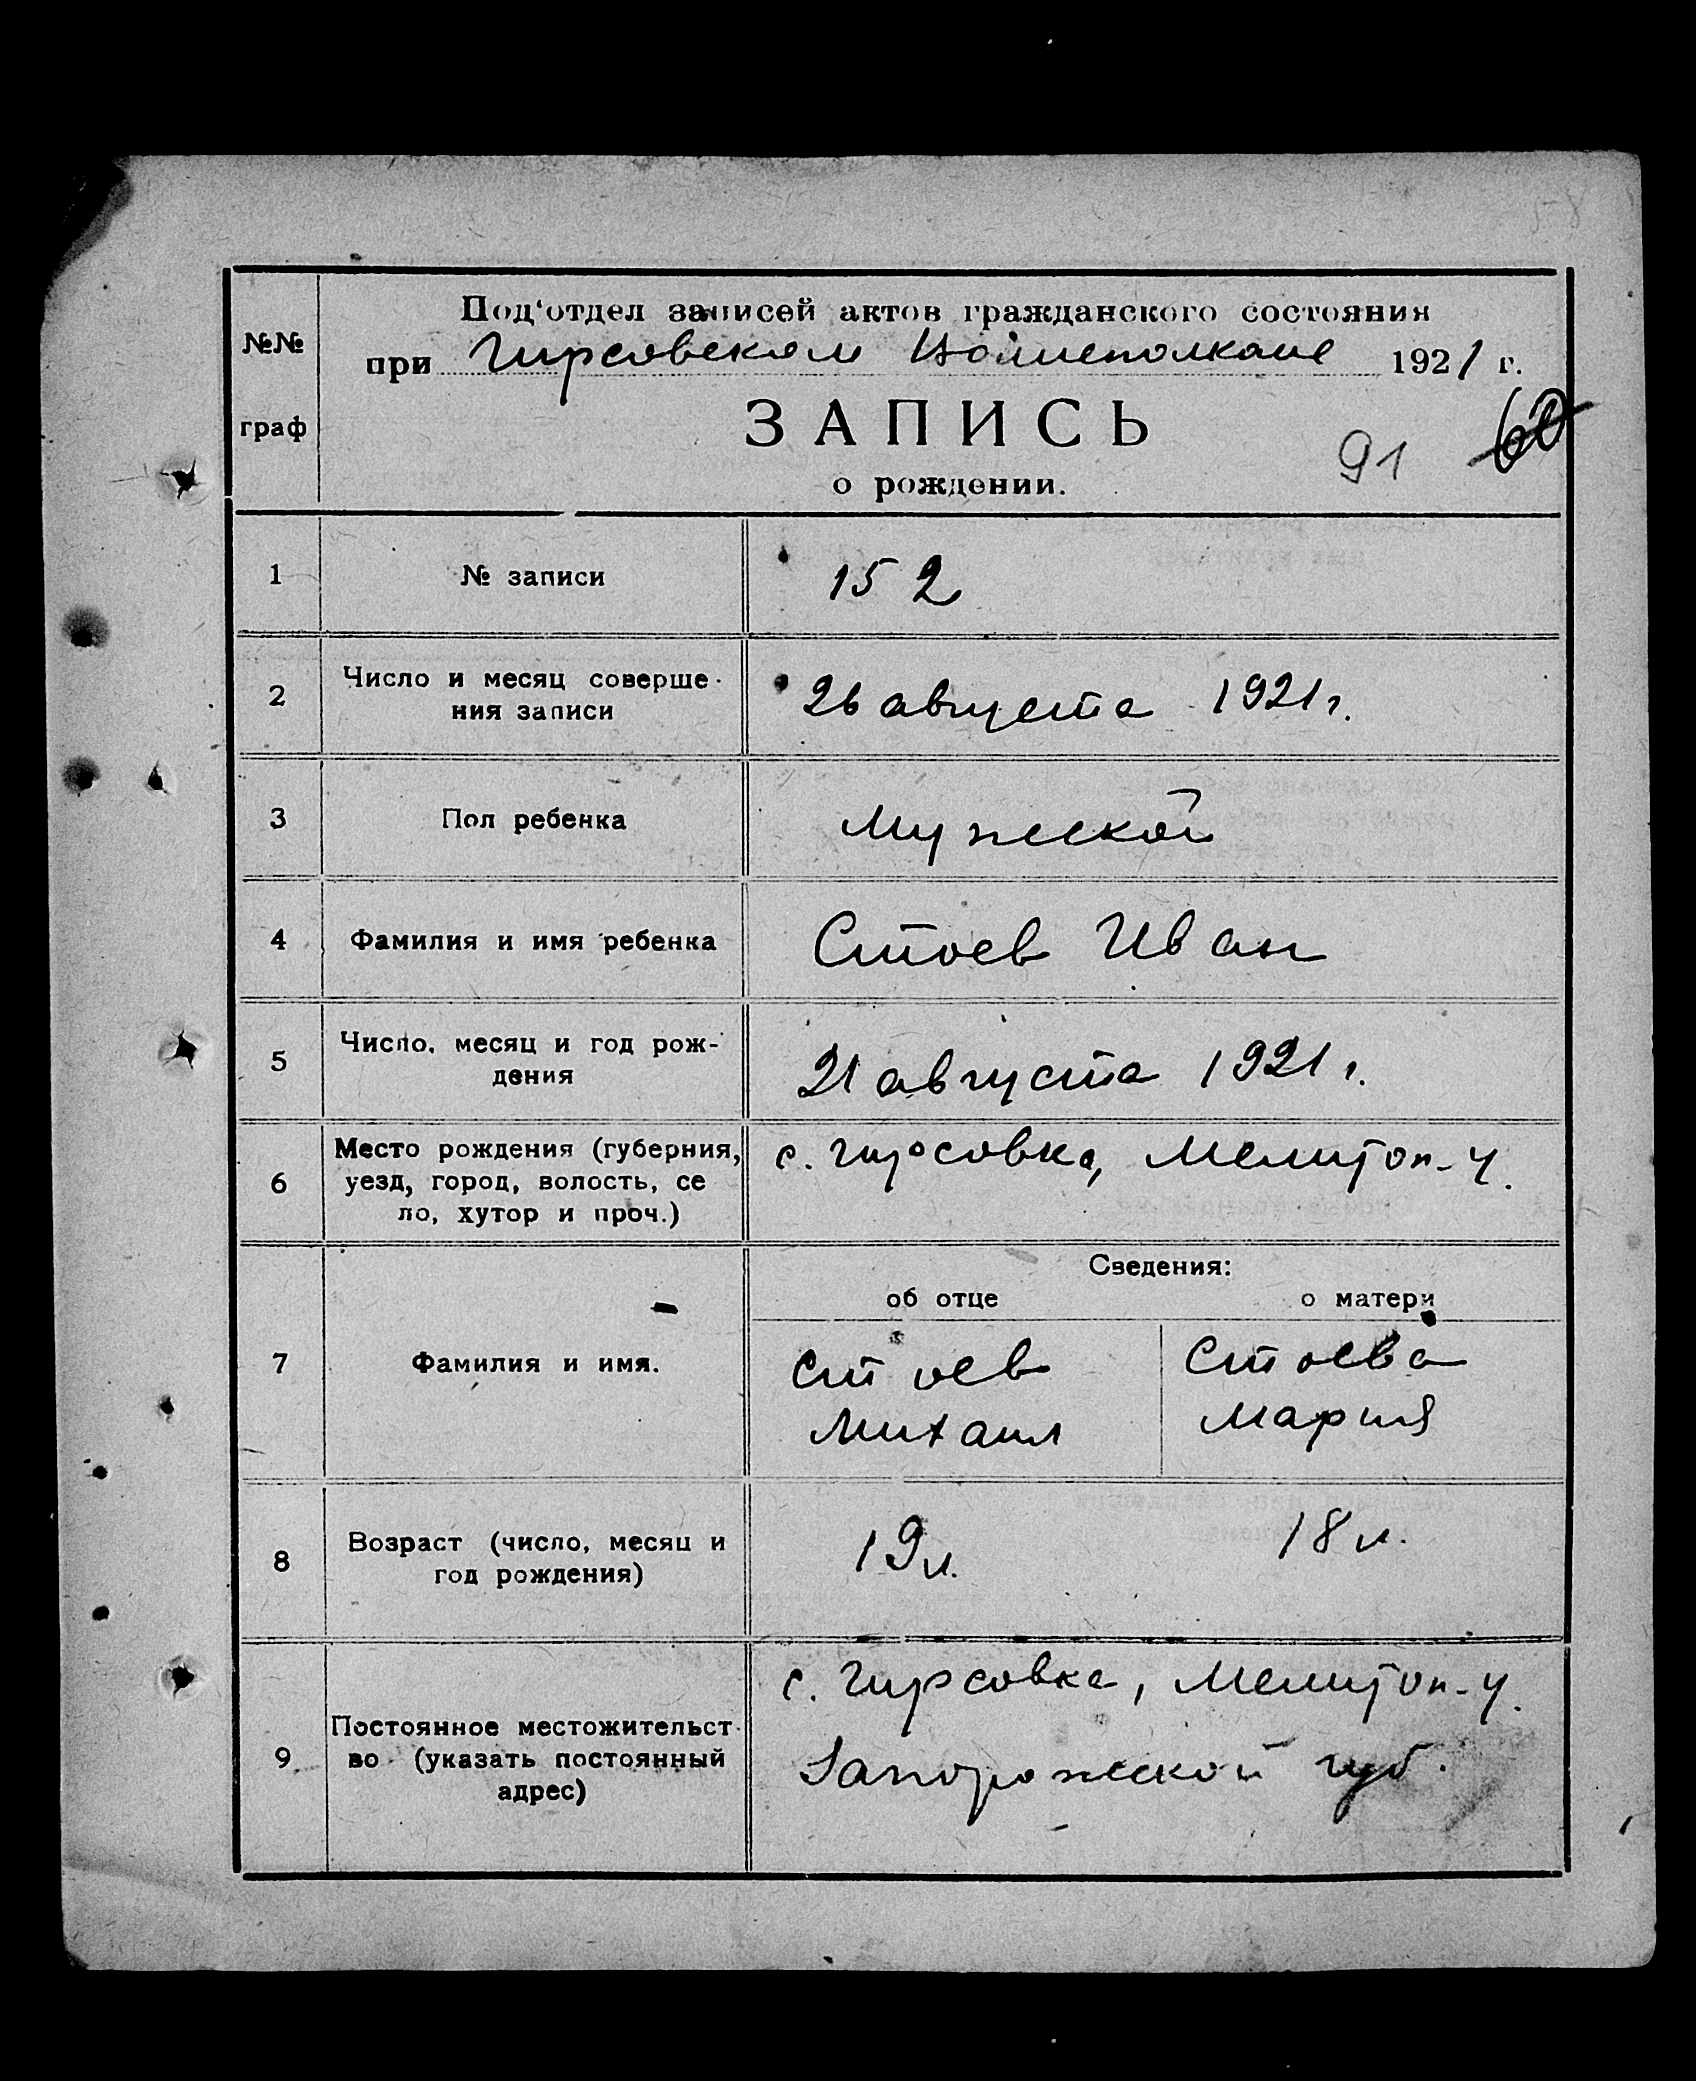 58
Под'отдел записей актов гражданского состояния
при Гирсовском Волисполкоме 1921 г.
№№
граф
ЗАПИСЬ
91 60
о рождении.
1 № записи 152
2 Число и месяц соверше-
ния записи
26 августа 1921 г.
3 Пол ребенка Мужской
4 Фамилия и имя ребенка Стоев Иван
5 Число, месяц и год рож-
дения
21 августа 1921 г.
6 Место рождения (губерния,
уезд, город, волость, се
ло, хутор и проч.)
с. Гирсовка, Мелитоп-у.
Сведения:
об отце о матери
7 Фамилия и имя.
Стоев
Михаил
Стоева
Мария
8 Возраст (число, месяц и
год рождения)
19 л. 18 л.
9 Постоянное местожительст-
во (указать постоянный
адрес)
с. Гирсовка, Мелитоп-у.
Запорожской губ.